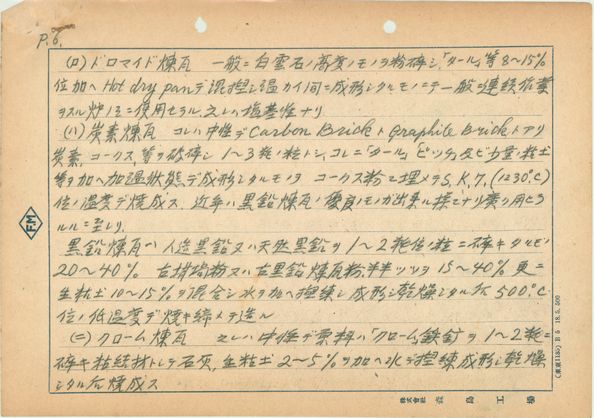 P.6.
(ロ) ドロマイド煉瓦 一般ニ白雲石ノ高度ノモノヲ粉砕シ、「タール」等 8～15%
位加ヘ Hot dry pan デ混捏シ温カイ間ニ成形シタルモノニテ一般ニ連続作業
ヲスル炉ノミニ使用セラル 之レハ塩基性ナリ
(ハ) 炭素煉瓦 コレハ中性デ Carbon Brick ト Graphite Brick トアリ
炭素、コークス、等ヲ破砕シ 1～3粍ノ粒トシ、コレニ「タール」「ピッチ」及ビ少量ノ粘土
等ヲ加ヘ加温状態デ成形シタルモノヲ コークス粉デ埋メテ S.K.7. (1230°C)
位ノ温度デ焼成ス。近年ハ黒鉛煉瓦ノ優良ノモノガ出来ル様ニナリ廣ク用ヒラ
ルルニ至レリ.
黒鉛煉瓦ハ人造黒鉛又ハ天然黒鉛ヲ 1～2粍位ノ粒ニ砕キタルモノ
20～40% 古坩堝粉又ハ古黒鉛煉瓦粉半半ヅツヲ 15～40% 更ニ
生粘土 10～15%ヲ混合シ水ヲ加ヘ捏練シ成形シ乾燥シタル后 500°C
位ノ低温度デ焼キ締メテ造ル
(ニ) クローム煉瓦 之レハ中性デ原料ハ「クローム鉄鉱」ヲ 1～2粍
砕キ粘結材トシテ石灰、生粘土 2～5%ヲ加ヘ水デ捏練成形シ乾燥
シタル后焼成ス
FM
(東京1180) B5 18.5.500
株式会社 森島工場